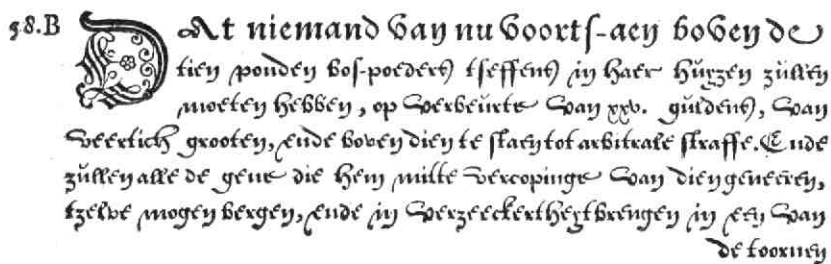 58.B DAt niemand van nu voorts-aen boven de
tien ponden bos-poeders tseffens in haer huyzen zullen
moeten hebben, op verbeurte van xxv. guldens, van
veertich grooten, ende boven dien te staen tot arbitrale straffe. Ende
zullen alle de gene die hem mitte vercopinge van dien geneeren,
tzelve mogen bergen, ende in verzeeckertheyt brengen in een van
de toornen